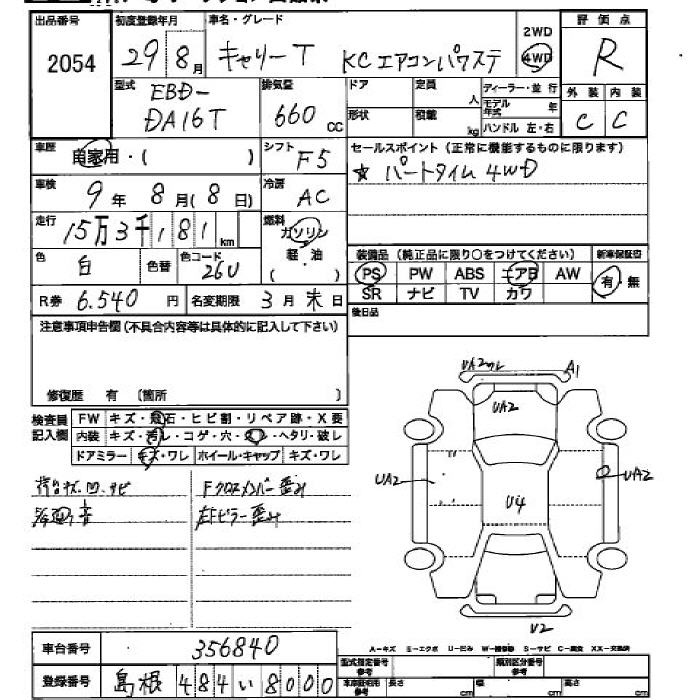 出品番号 初度登録年月 車名・グレード 2WD 評価点
2054 29 8月 キャリーT KCエアコンパワステ 4WD R
型式 EBD- 排気量 ドア 定員 人 ディーラー・並行 外装 内装
DA16T 660 cc 形状 積載 kg モデル年式 年 ハンドル 左・右 C C
車歴 自家用・( ) シフト F5 セールスポイント (正常に機能するものに限ります)
☆ パートタイム 4WD
車検 9年 8月(8日) 冷房 AC
走行 15万3千181km 燃料 ガソリン 軽・油 ( )
色 白 色替 色コード 26U
装備品 (純正品に限り○をつけてください) 新車保証書
PS PW ABS エアB AW 有・無
SR ナビ TV カワ
R券 6.540 円 名変期限 3月末日
後日品
注意事項申告欄 (不具合内容等は具体的に記入して下さい)
修復歴 有 (箇所 )
検査員記入欄 FW キズ・飛石・ヒビ割・リペア跡・X要
内装 キズ・汚レ・コゲ・穴・ ・ヘタリ・破レ
ドアミラー キズ・ワレ ホイール・キャップ キズ・ワレ
荷台キズ.凹.サビ Fクロスメンバー歪み
音 左Fピラー歪み
UA2ワレ A1
UA2
UA2 UA2
U4
U2
A－キズ E－エクボ U－凹み W－補修跡 S－サビ C－腐食 XX－交換済
車台番号 356840
登録番号 島根 484 い 8000
型式指定番号 参考 類別区分番号 参考
車体寸法 参考 長さ cm 幅 cm 高さ cm